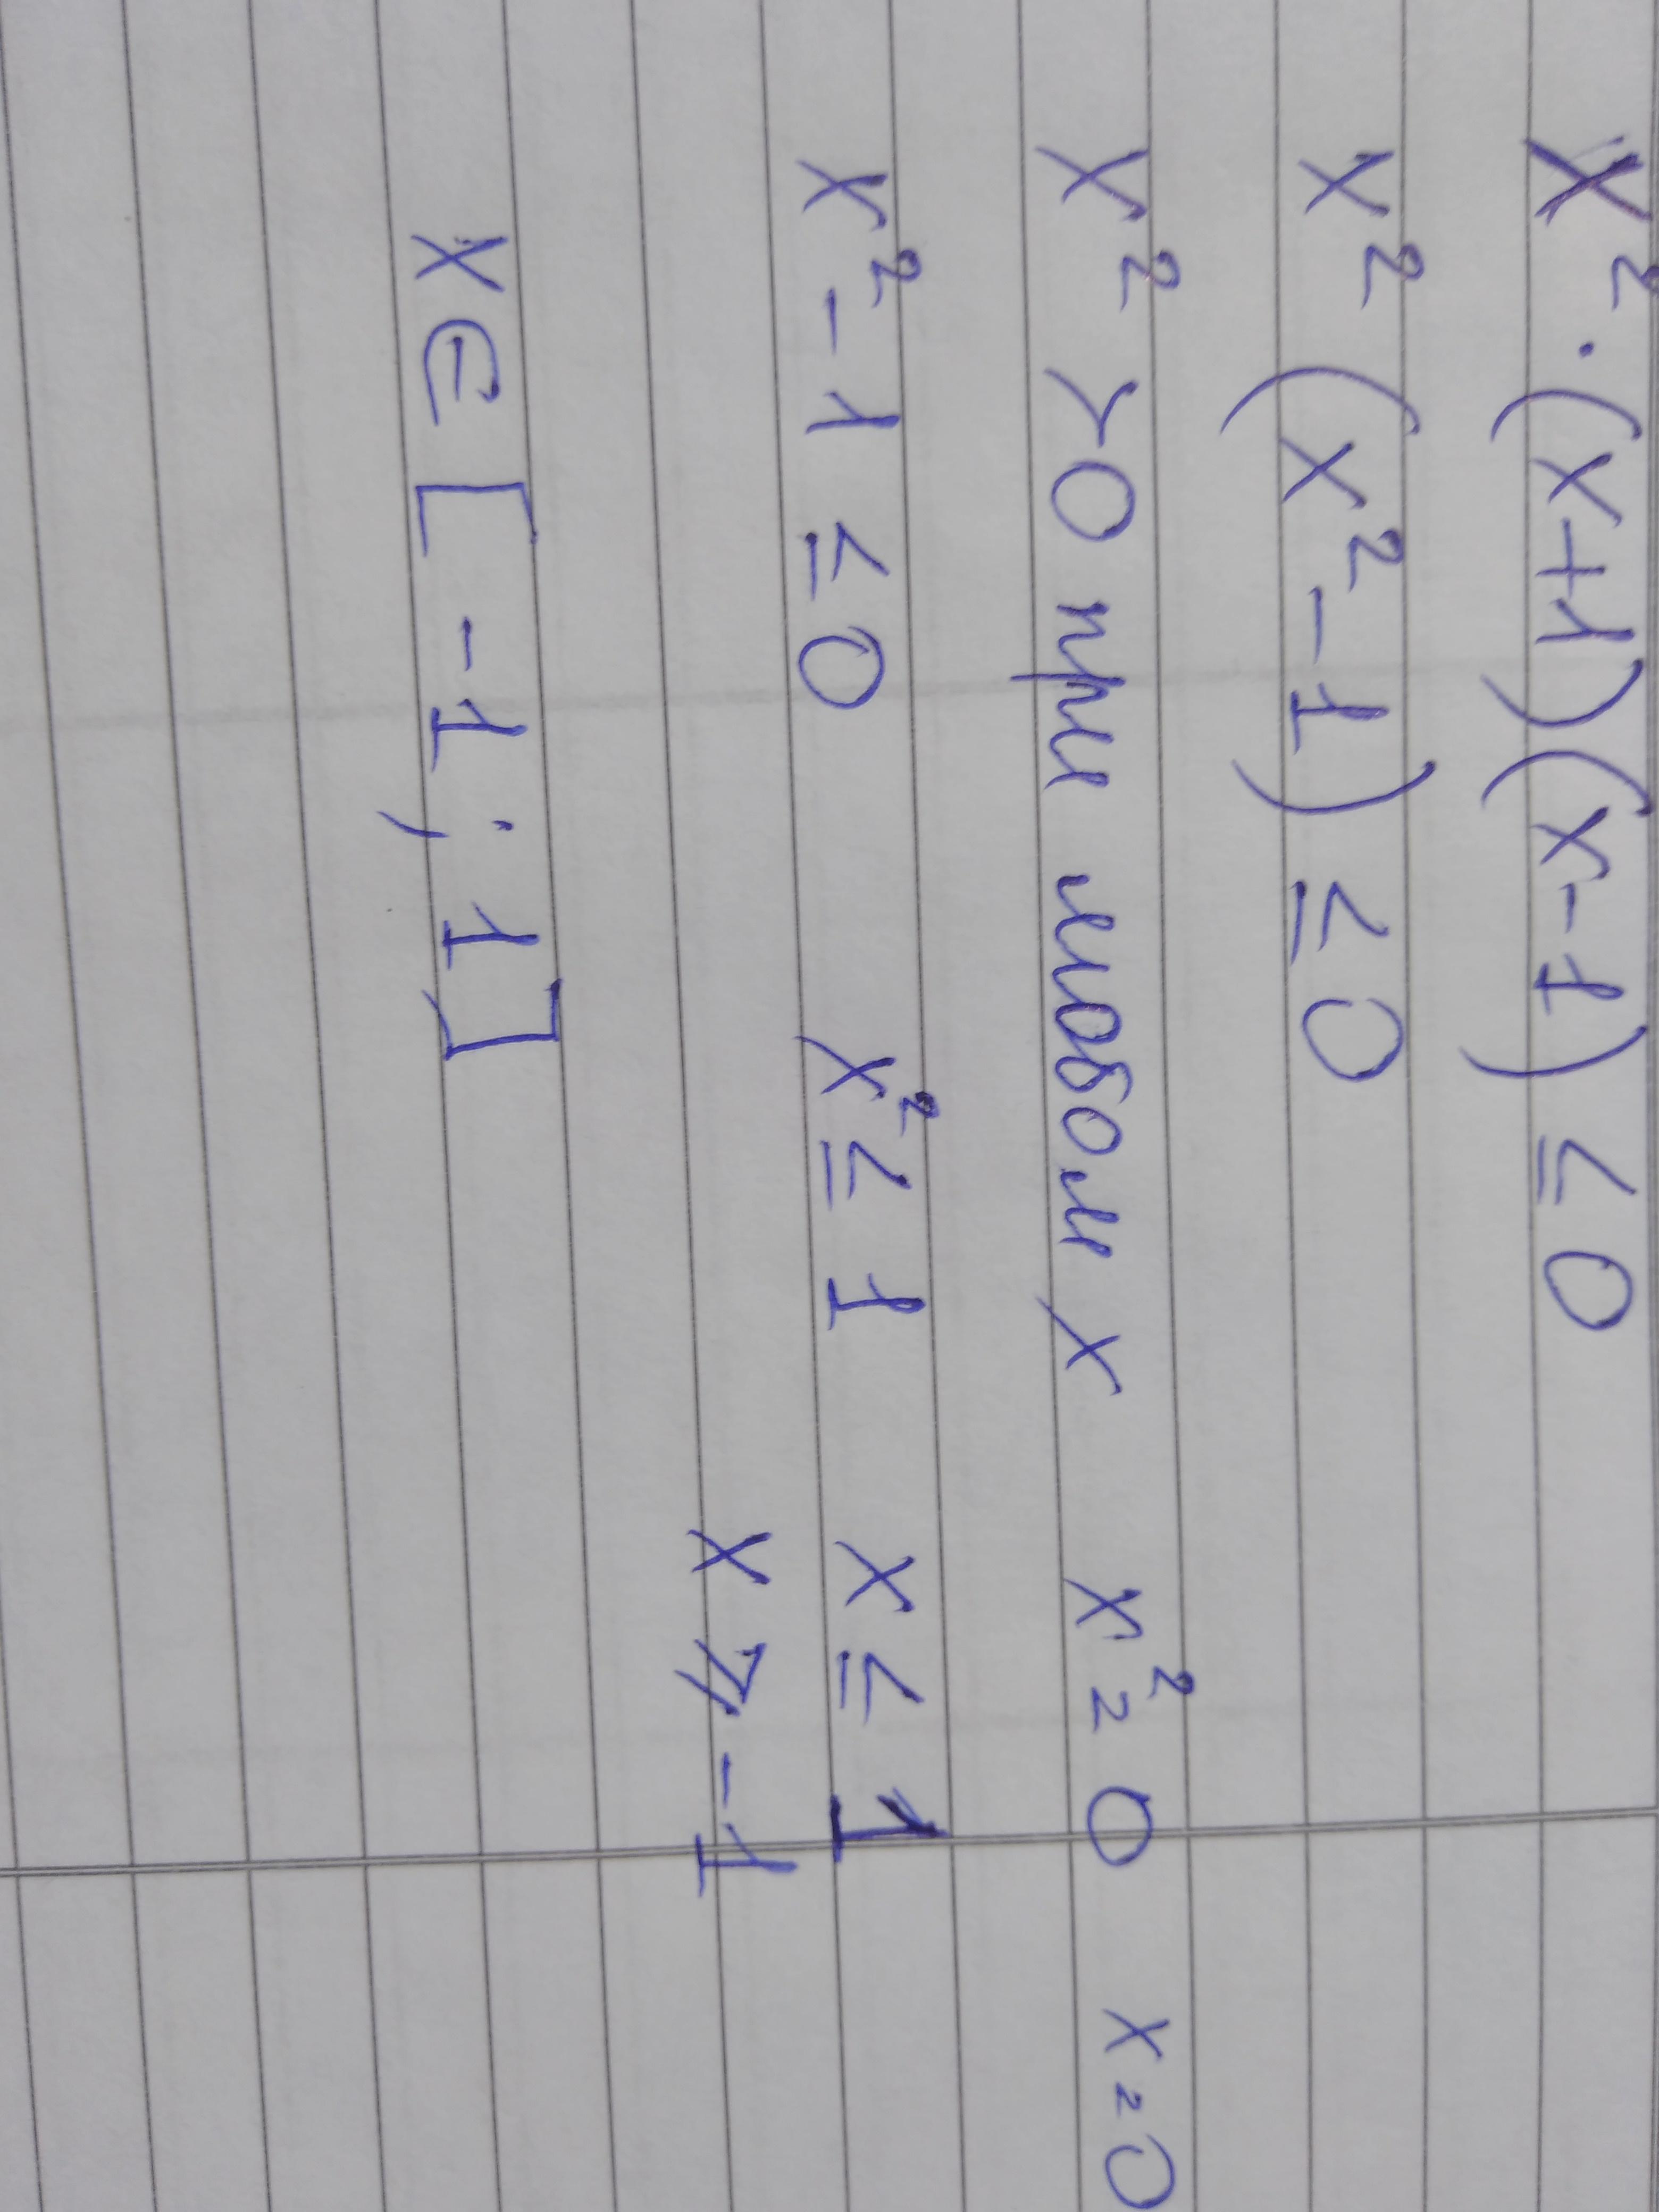 x² · (x+1)(x-1) ≤ 0
x² (x² - 1) ≤ 0
x² > 0 при любом x x² = 0 x = 0
x² - 1 ≤ 0 x² ≤ 1 x ≤ 1
x ⩾ -1
x ∈ [ -1 ; 1 ]